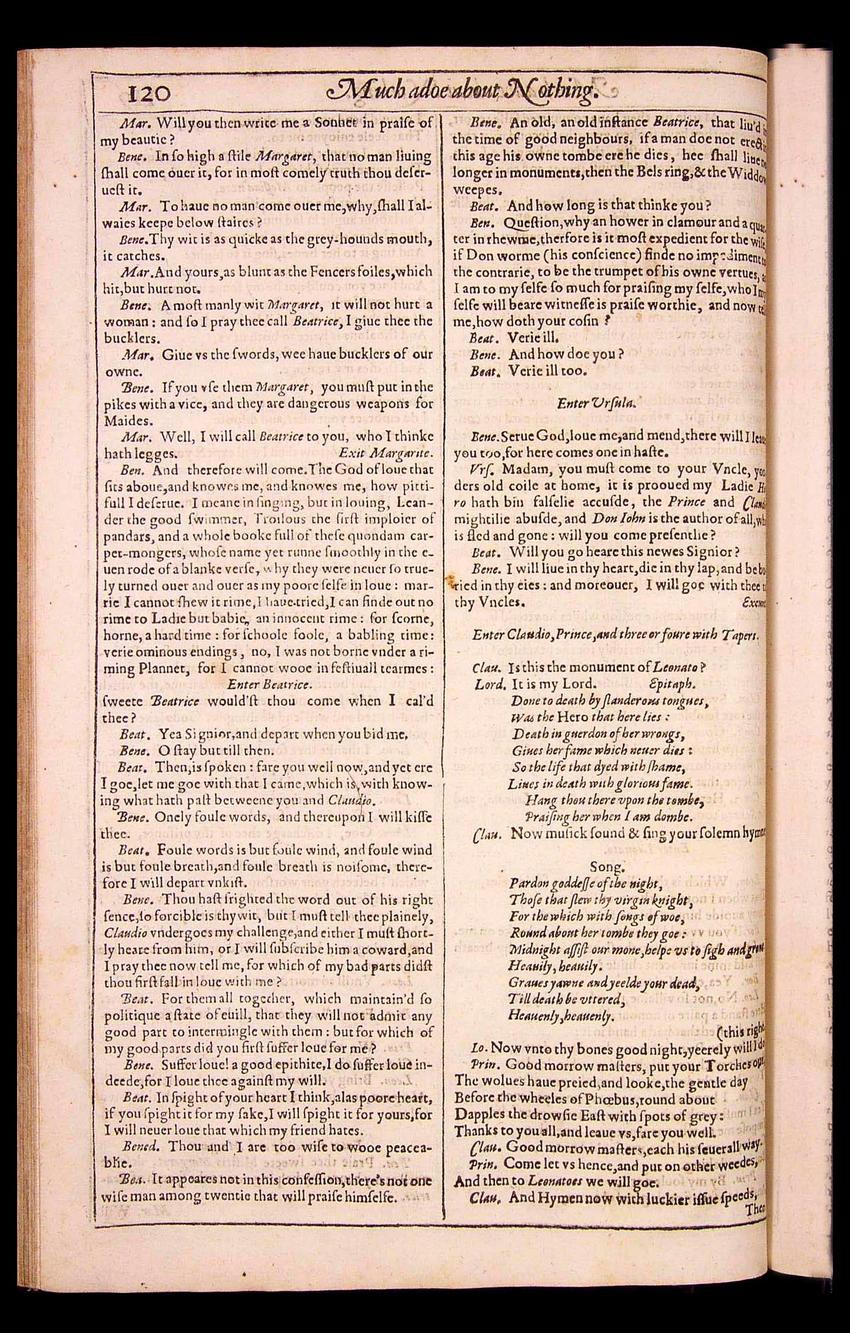 120
Much adoe about Nothing.
Mar. Will you then write me a Sonnet in praiſe of
my beautie?
Bene. In ſo high a ſtile Margaret, that no man liuing
ſhall come ouer it, for in moſt comely truth thou deſer-
ueſt it.
Mar. To haue no man come ouer me,why,ſhall I al-
waies keepe below ſtaires?
Bene.Thy wit is as quicke as the grey-hounds mouth,
it catches.
Mar.And yours,as blunt as the Fencers foiles,which
hit,but hurt not.
Bene. A moſt manly wit Margaret, it will not hurt a
woman : and ſo I pray thee call Beatrice, I giue thee the
bucklers.
Mar. Giue vs the ſwords, wee haue bucklers of our
owne.
Bene. If you vſe them Margaret, you muſt put in the
pikes with a vice, and they are dangerous weapons for
Maides.
Mar. Well, I will call Beatrice to you, who I thinke
hath legges. Exit Margarite.
Ben. And therefore will come.The God of loue that
ſits aboue,and knowes me, and knowes me, how pitti-
full I deſerue. I meane in ſinging, but in louing, Lean-
der the good ſwimmer, Troilous the firſt imploier of
pandars, and a whole booke full of theſe quondam car-
pet-mongers, whoſe name yet runne ſmoothly in the e-
uen rode of a blanke verſe, why they were neuer ſo true-
ly turned ouer and ouer as my poore ſelfe in loue : mar-
rie I cannot ſhew it rime,I haue tried,I can finde out no
rime to Ladie but babie, an innocent rime : for ſcorne,
horne, a hard time : for ſchoole foole, a babling time:
verie ominous endings, no, I was not borne vnder a ri-
ming Plannet, for I cannot wooe in feſtiuall tearmes:
Enter Beatrice.
ſweete Beatrice would'ſt thou come when I cal'd
thee?
Beat. Yea Signior,and depart when you bid me.
Bene. O ſtay but till then.
Beat. Then,is ſpoken : fare you well now,and yet ere
I goe,let me goe with that I came,which is,with know-
ing what hath paſt betweene you and Claudio.
Bene. Onely foule words, and thereupon I will kiſſe
thee.
Beat. Foule words is but foule wind, and foule wind
is but foule breath,and foule breath is noiſome, there-
fore I will depart vnkiſt.
Bene. Thou haſt frighted the word out of his right
ſence,ſo forcible is thy wit, but I muſt tell thee plainely,
Claudio vndergoes my challenge,and either I muſt ſhort-
ly heare from him, or I will ſubſcribe him a coward,and
I pray thee now tell me, for which of my bad parts didſt
thou firſt fall in loue with me?
Beat. For them all together, which maintain'd ſo
politique a ſtate of euill, that they will not admit any
good part to intermingle with them : but for which of
my good parts did you firſt ſuffer loue for me?
Bene. Suffer loue! a good epithite,I do ſuffer loue in-
deede,for I loue thee againſt my will.
Beat. In ſpight of your heart I think,alas poore heart,
if you ſpight it for my ſake,I will ſpight it for yours,for
I will neuer loue that which my friend hates.
Bened. Thou and I are too wiſe to wooe peacea-
blie.
Bea. It appeares not in this confeſſion,there's not one
wiſe man among twentie that will praiſe himſelfe.
Bene. An old, an old inſtance Beatrice, that liu'd
the time of good neighbours, if a man doe not
this age his owne tombe ere he dies, hee ſhall
longer in monuments,then the Bels ring,& the
weepes.
Beat. And how long is that thinke you?
Ben. Queſtion,why an hower in clamour and a
ter in rhewme,therfore is it moſt expedient for the
if Don worme (his conſcience) finde no
the contrarie, to be the trumpet of his owne vertues,
I am to my ſelfe ſo much for praiſing my ſelfe,who I
ſelfe will beare witneſſe is praiſe worthie, and now
me,how doth your coſin?
Beat. Verie ill.
Bene. And how doe you?
Beat. Verie ill too.
Enter Vrſula.
Bene.Serue God,loue me,and mend,there will I
you too,for here comes one in haſte.
Vrſ. Madam, you muſt come to your Vncle,
ders old coile at home, it is prooued my Ladie
ro hath bin falſelie accuſde, the Prince and
mightilie abuſde, and Don Iohn is the author of all,
is fled and gone : will you come preſentlie?
Beat. Will you go heare this newes Signior?
Bene. I will liue in thy heart,die in thy lap,and be
ried in thy eies : and moreouer, I will goe with thee
thy Vncles.
Enter Claudio,Prince,and three or foure with Tapers.
Clau. Is this the monument of Leonato?
Lord. It is my Lord. Epitaph.
Done to death by ſlanderous tongues,
Was the Hero that here lies :
Death in guerdon of her wrongs,
Giues her fame which neuer dies :
So the life that dyed with ſhame,
Liues in death with glorious fame.
Hang thou there vpon the tombe,
Praiſing her when I am dombe.
Clau. Now muſick ſound & ſing your ſolemn
Song.
Pardon goddeſſe of the night,
Thoſe that ſlew thy virgin knight,
For the which with ſongs of woe,
Round about her tombe they goe :
Midnight aſſiſt our mone,helpe vs to ſigh and
Heauily, heauily.
Graues yawne and yeelde your dead,
Till death be vttered,
Heauenly,heauenly.
(this
Lo. Now vnto thy bones good night,yeerely will I
Prin. Good morrow maſters, put your Torches
The wolues haue preied,and looke,the gentle day
Before the wheeles of Phœbus,round about
Dapples the drowſie Eaſt with ſpots of grey:
Thanks to you all,and leaue vs,fare you well.
Clau. Good morrow maſters,each his ſeuerall way.
Prin. Come let vs hence,and put on other weedes,
And then to Leonatoes we will goe.
Clau. And Hymen now with luckier iſſue ſpeeds,
Then